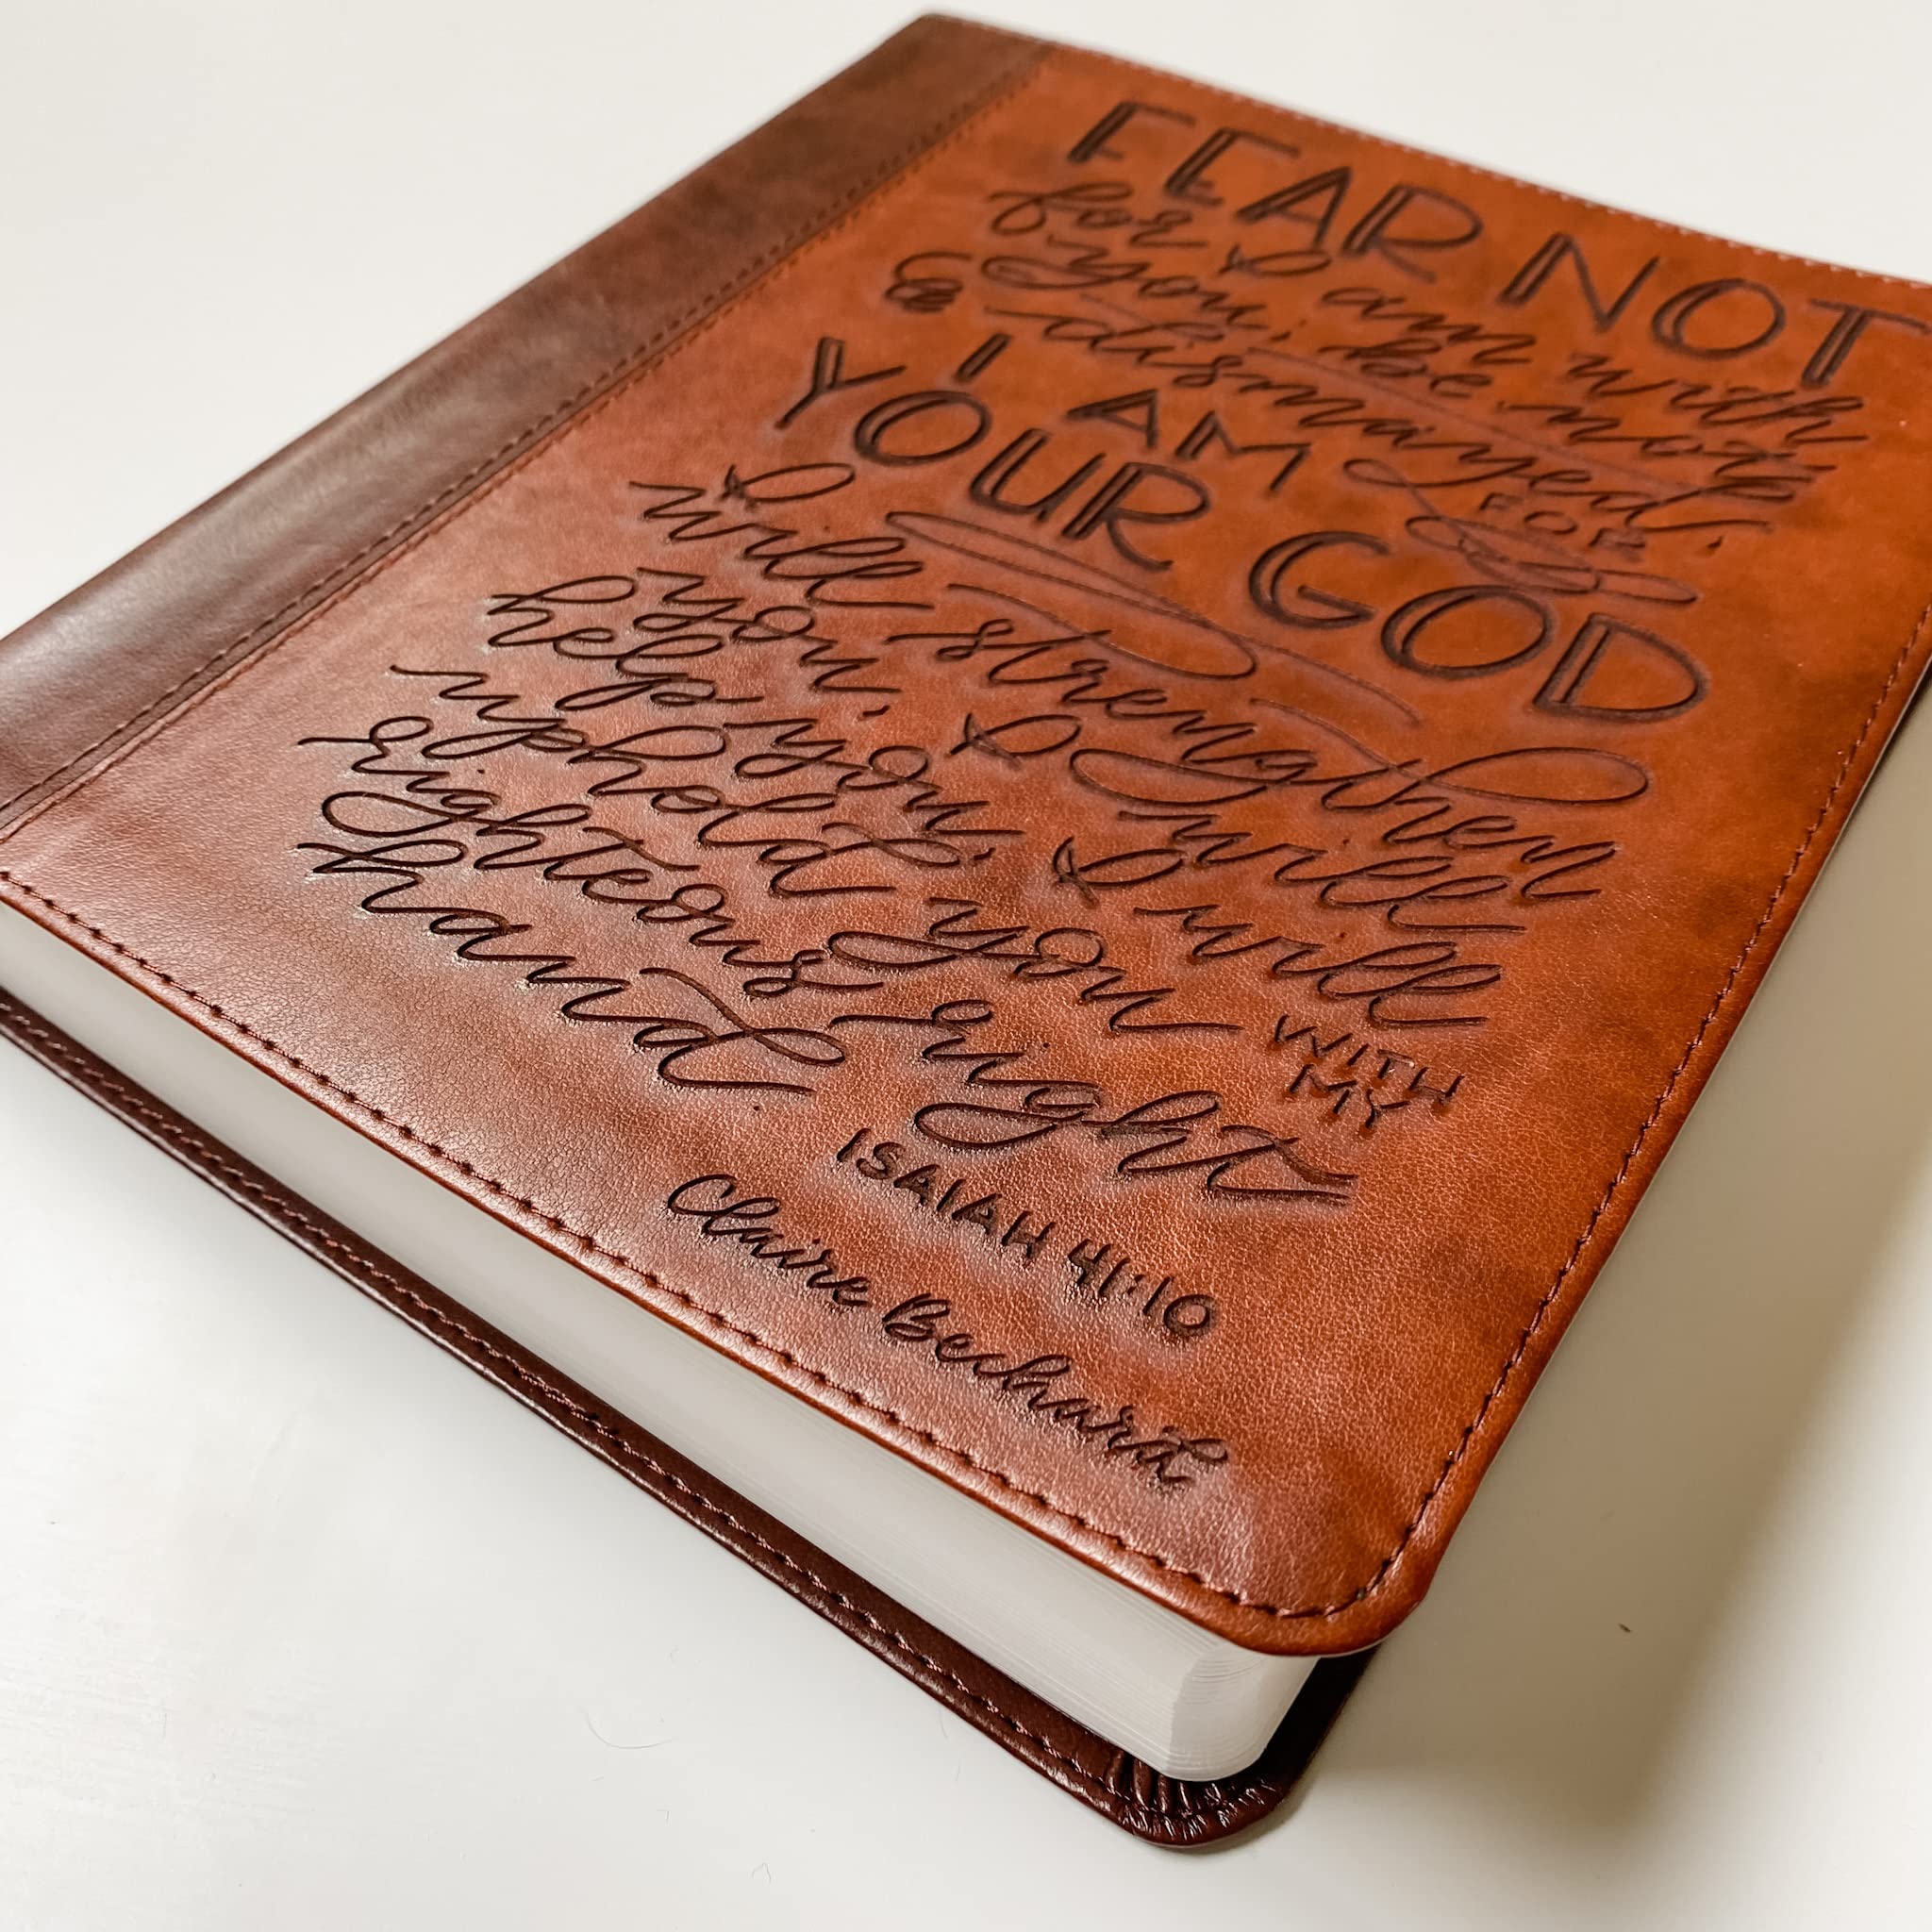 FEAR NOT
for I am with
you; be not
dismayed, FOR
I AM
YOUR GOD
I
will strengthen
you, I will
help you, I will
uphold you WITH MY
righteous right
hand.
ISAIAH 41:10
Claire Bechard